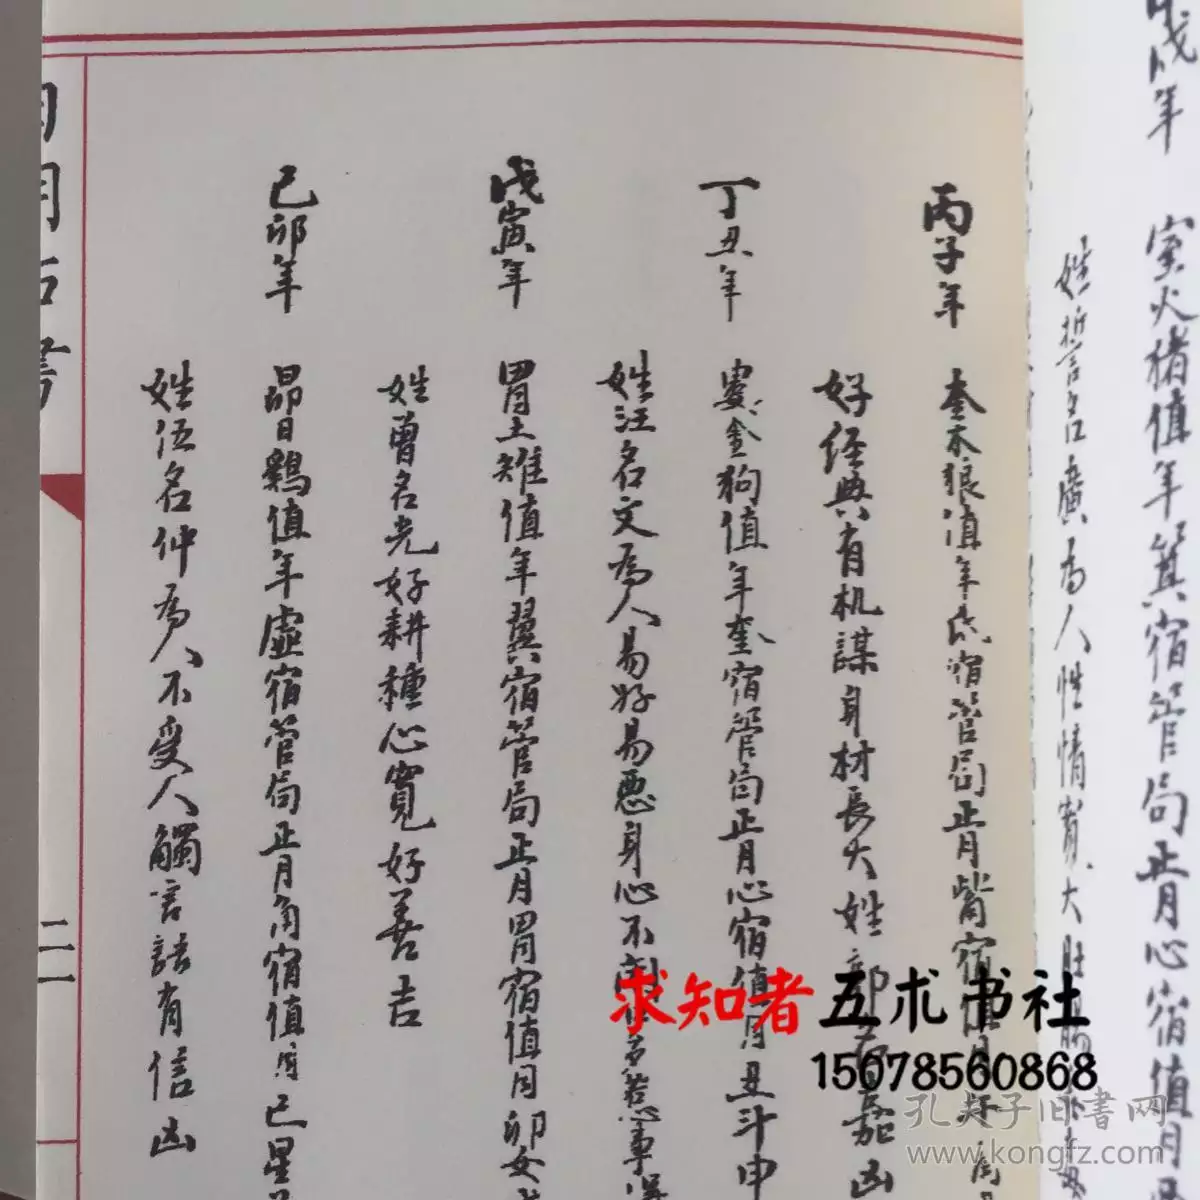 戊年　室火猪值年箕宿管局正月心宿值月
姓哲名廣為人性情寬大胆
丙子年　奎木狼值年氐宿管局正月觜宿值月
好经典有机謀身材長大姓郭名嘉凶
丁丑年　婁金狗值年奎宿管局正月心宿值月丑斗申
姓汪名文為人易好易惡身心不閑多惹事
戊寅年　胃土雉值年翼宿管局正月胃宿值月卯女
姓曾名光好耕種心寬好善吉
己卯年　昴日鷄值年虛宿管局正月角宿值月巳星
姓伍名仲為人不受人觸言語有信凶
二一
求知者五术书社
15678560868
孔夫子旧书网
www.kongfz.com